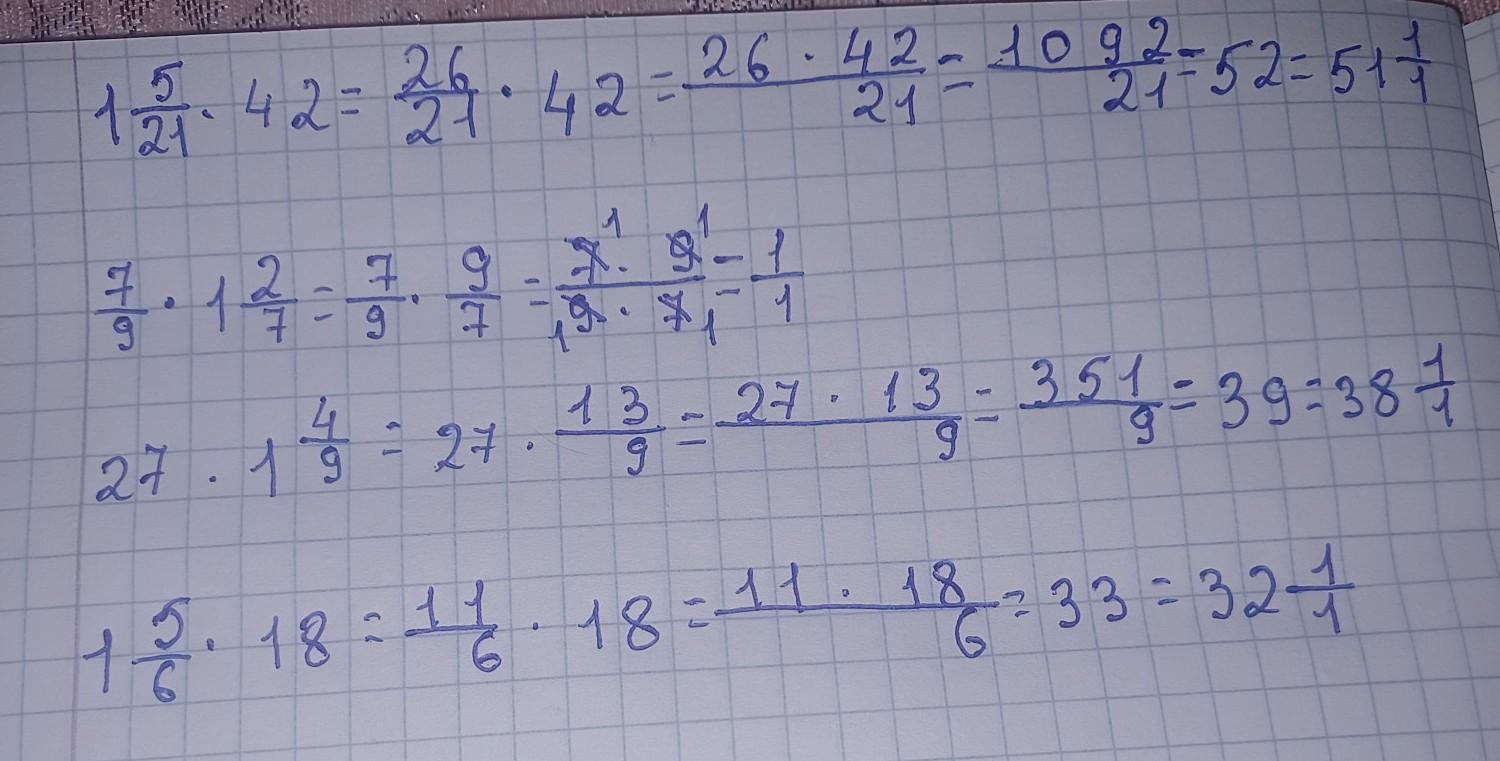 1 5/21 · 42 = 26/21 · 42 = 26 · 42/21 = 1092/21 = 52 = 51 1/1
7/9 · 1 2/7 = 7/9 · 9/7 = 7¹ · 9¹/₁9 · 7₁ = 1/1
27 · 1 4/9 = 27 · 13/9 = 27 · 13/9 = 351/9 = 39 = 38 1/1
1 5/6 · 18 = 11/6 · 18 = 11 · 18/6 = 33 = 32 1/1